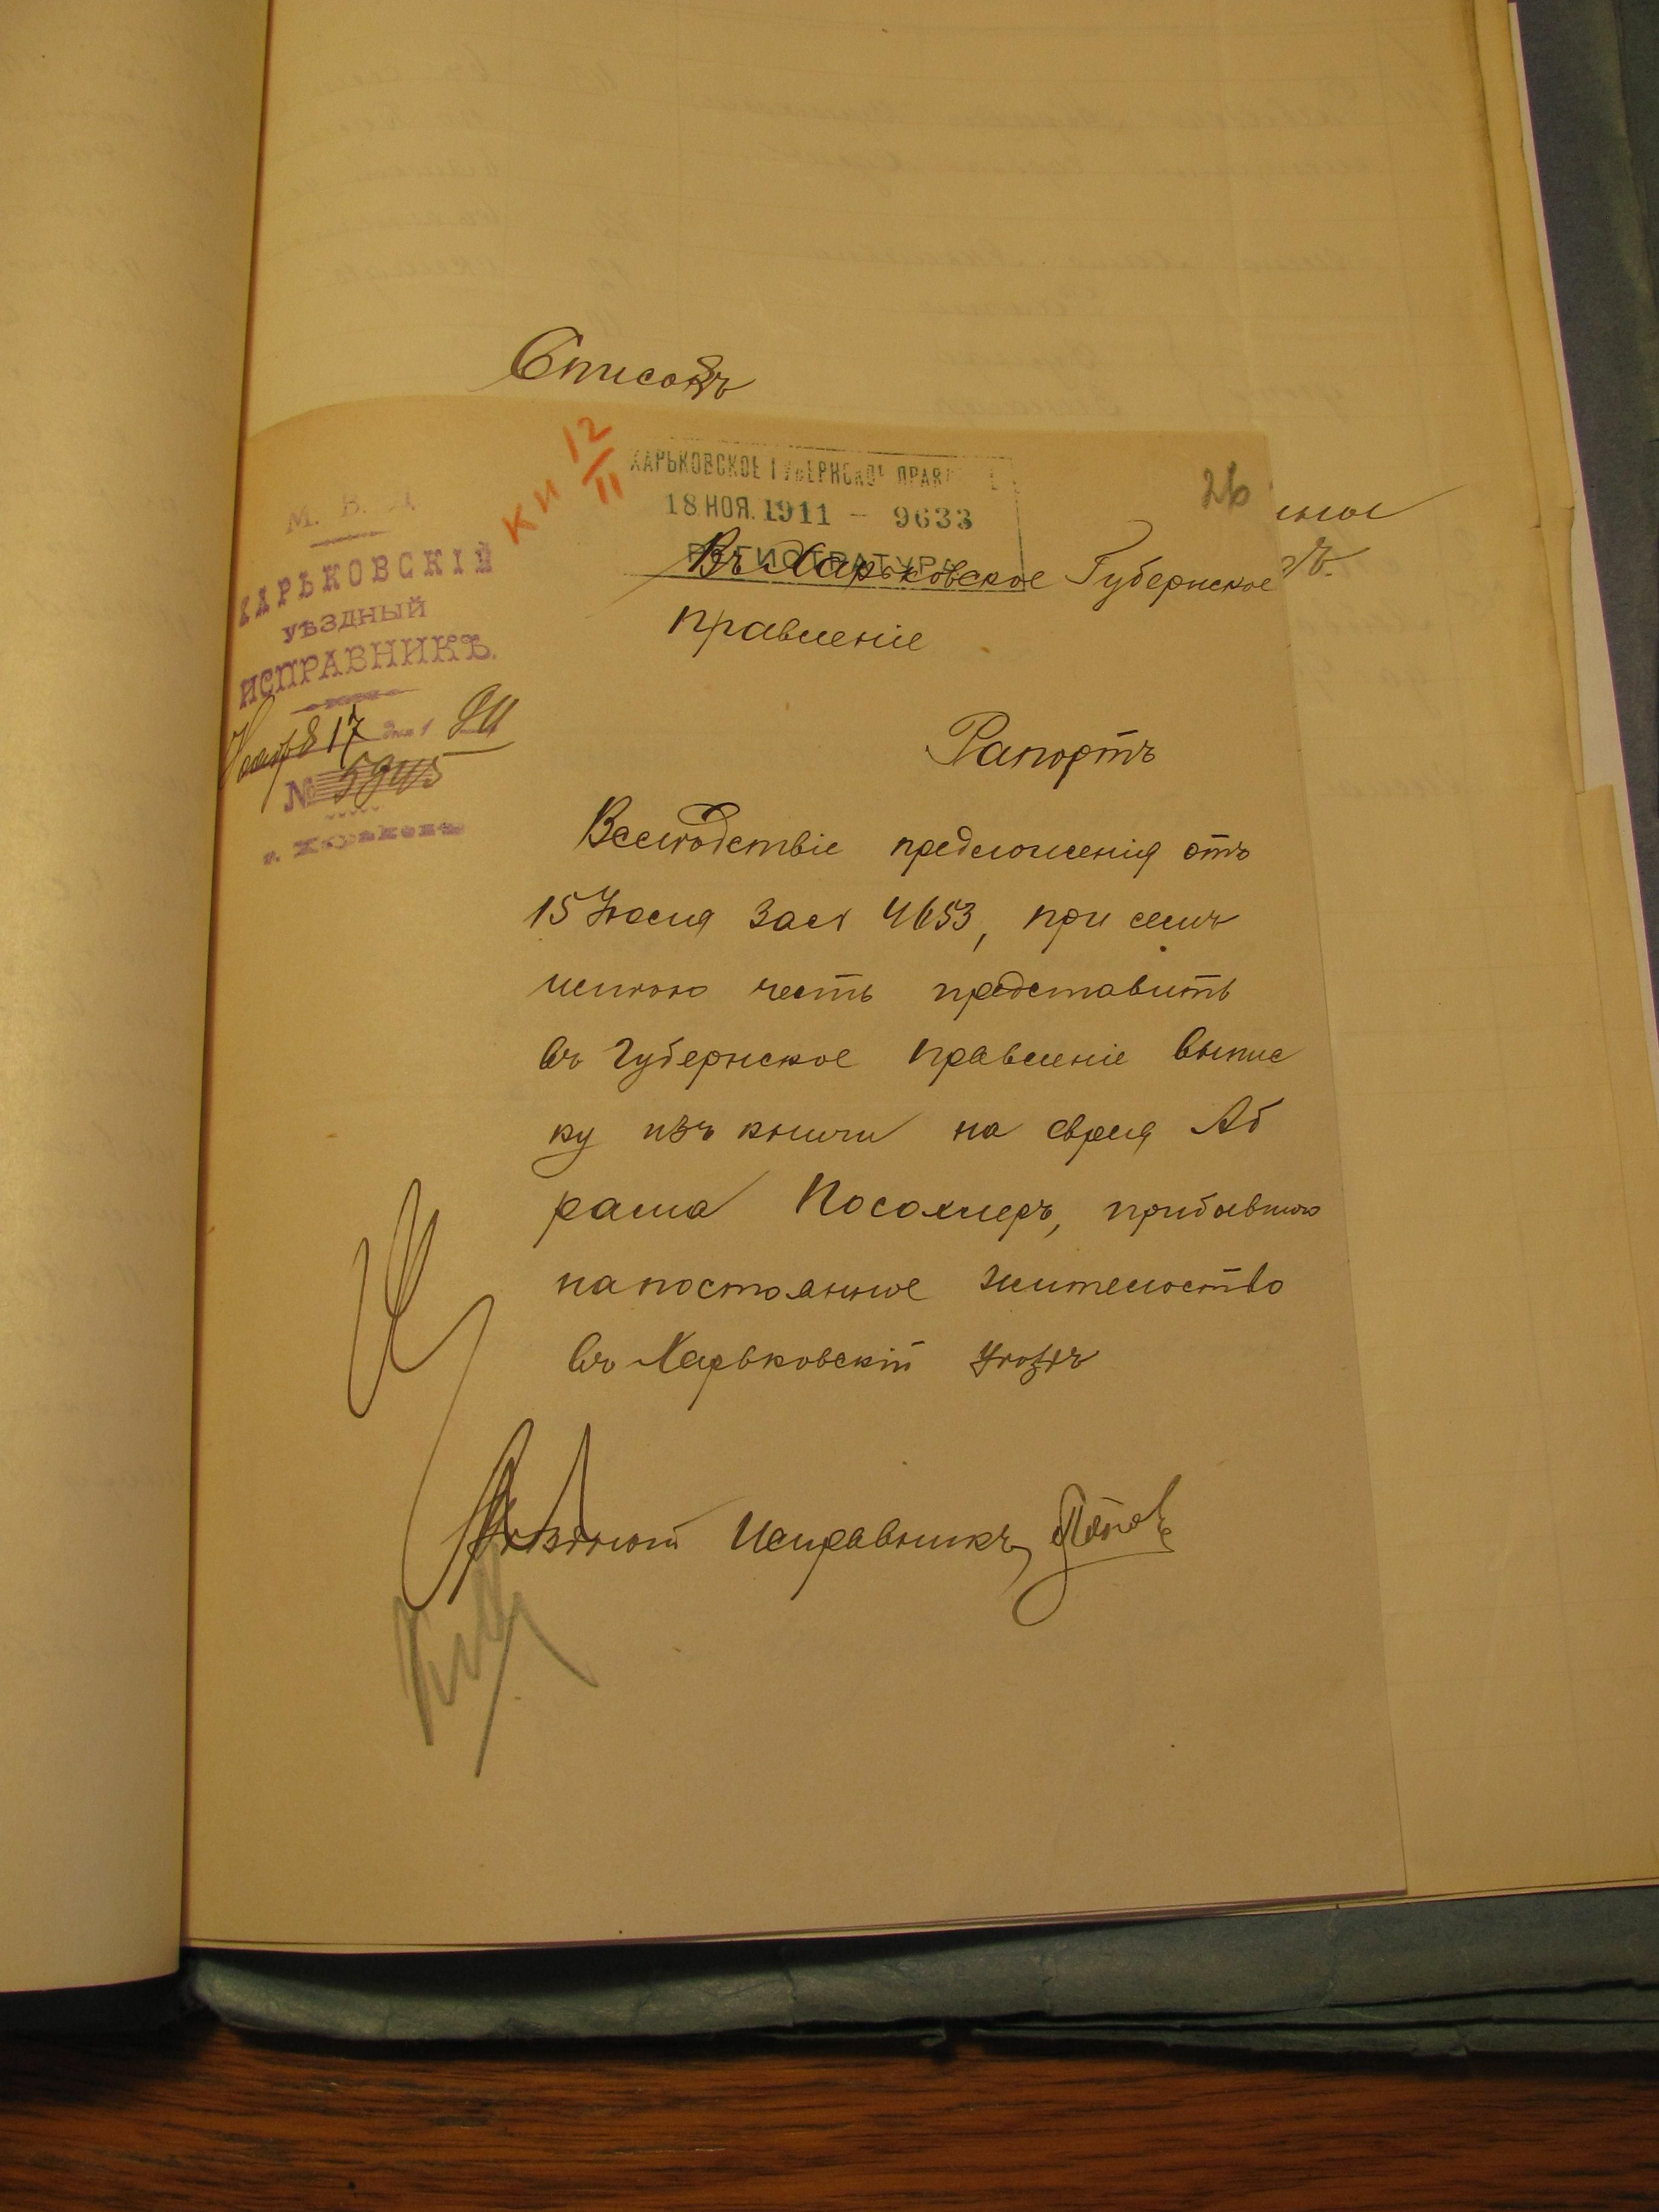 Списокъ
КИ 12/11
ХАРЬКОВСКОЕ ГУБЕРНСКОЕ ПРАВ Е
18 НОЯ. 1911 - 9633
РЕГИСТРАТУРА
26
М. В. Д.
ХАРЬКОВСКІЙ
УѢЗДНЫЙ
ИСПРАВНИКЪ.
Ноября 17 дня 1911
№ 5945
г. Харьковъ
Въ Харьковское Губернское
Правленіе
Рапортъ
Вслѣдствіе предложенія отъ
15 Іюля за № 4653, при семъ
имѣю честь представить
въ Губернское Правленіе выпис
ку изъ книги на еврея Аб
рама Посамиеръ, прибывшаго
на постоянное жительство
въ Харьковскій уѣздъ
Уѣздный Исправникъ Поповъ